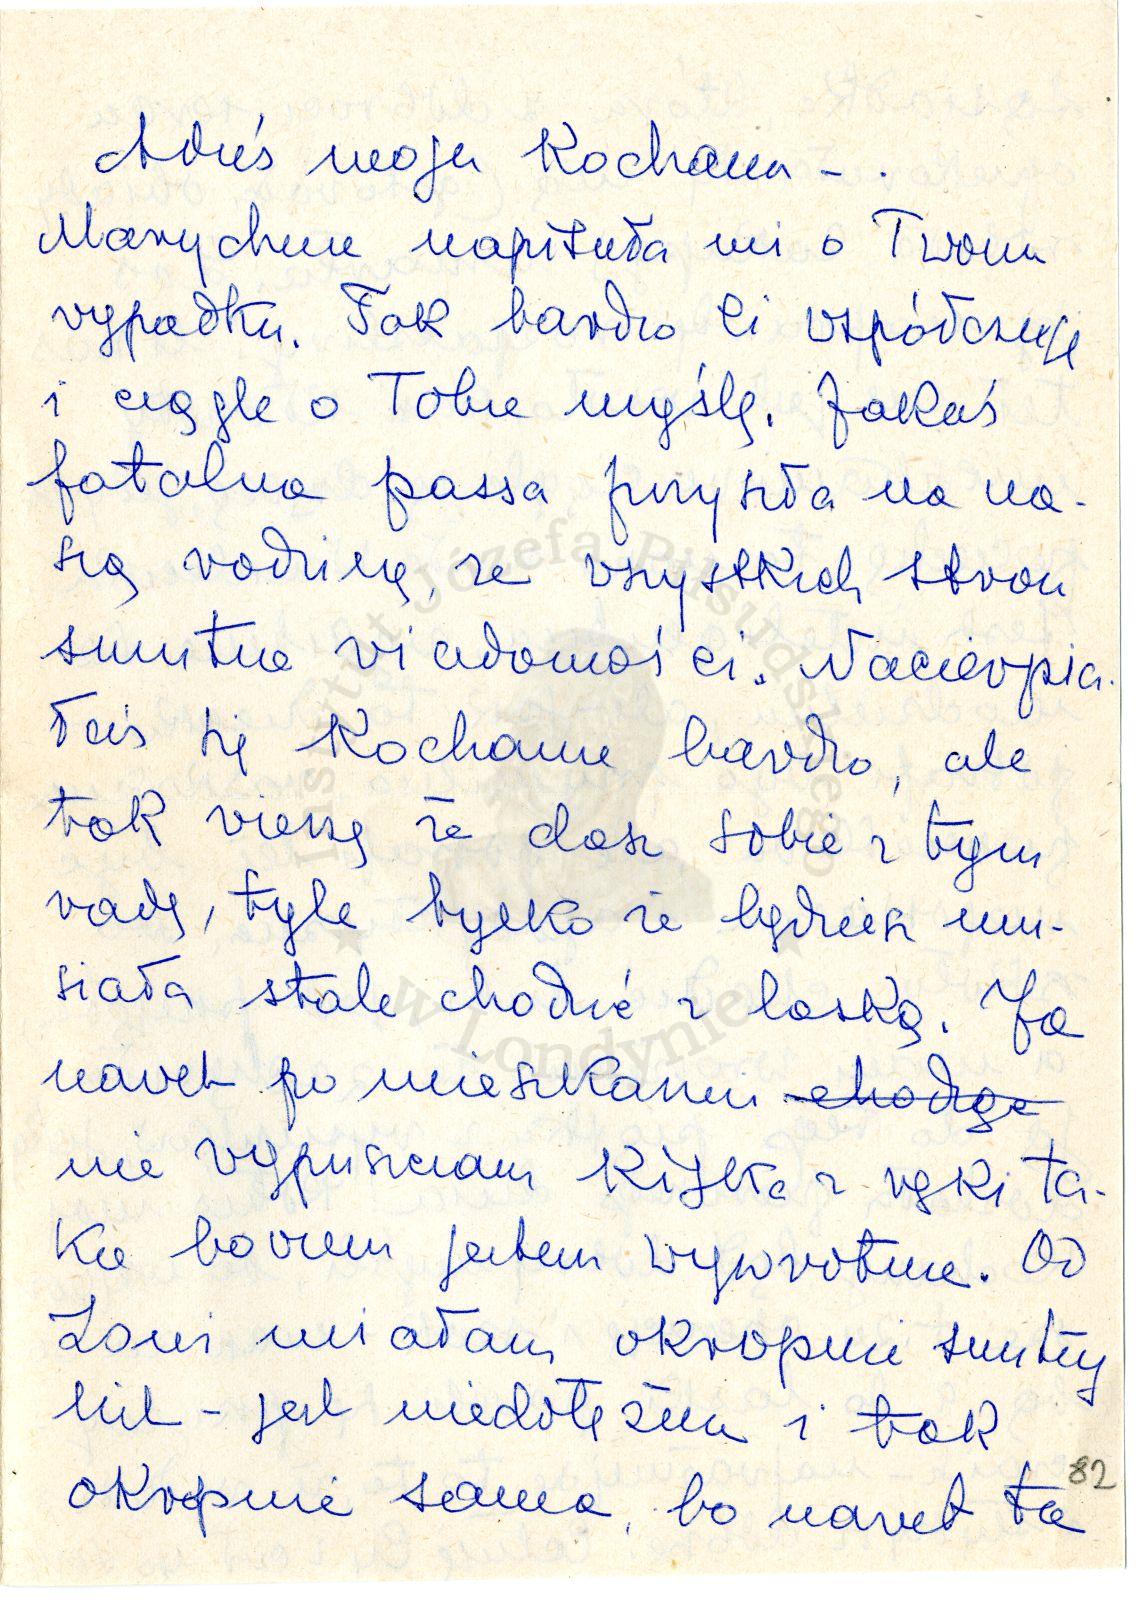 Aduś moja Kochana - .
Marychna napisała mi o Twem
wypadku. Tak bardzo Ci współczuję
i ciągle o Tobie myślę. Jakaś
fatalna passa przyszła na na-
szą rodzinę, ze wszystkich stron
smutne wiadomości. Nacierpia-
łaś się Kochanie bardzo, ale
tak wierzę że dasz sobie z tym
radę, tyle tylko że będziesz mu-
siała stale chodzić z laską. Ja
nawet po mieszkaniu chodząc
nie wypuszczam kijka z ręki ta-
ka bowiem jestem wywrotna. Od
Loni miałam okropnie smutny
list - jest niedołężna i tak
okropnie sama, bo nawet ta
82
Instytut Józefa Piłsudskiego
★ w Londynie ★